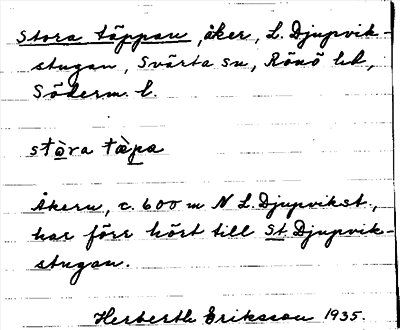 Stora täppan, åker, L. Djupvik-
stugan, Svärta sn, Rönö hd,
Söderm. l.
stòra tæ̀pa
Åkern, c. 600 m N L. Djupvikst.,
har förr hört till St. Djupvik-
stugan.
Herberth Eriksson 1935.